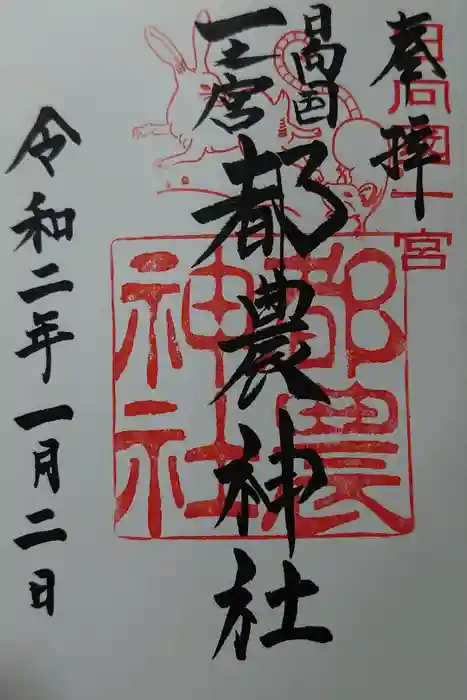 奉拝
日向國一宮
日向国
一之宮
都農神社
都農神社
令和二年一月二日